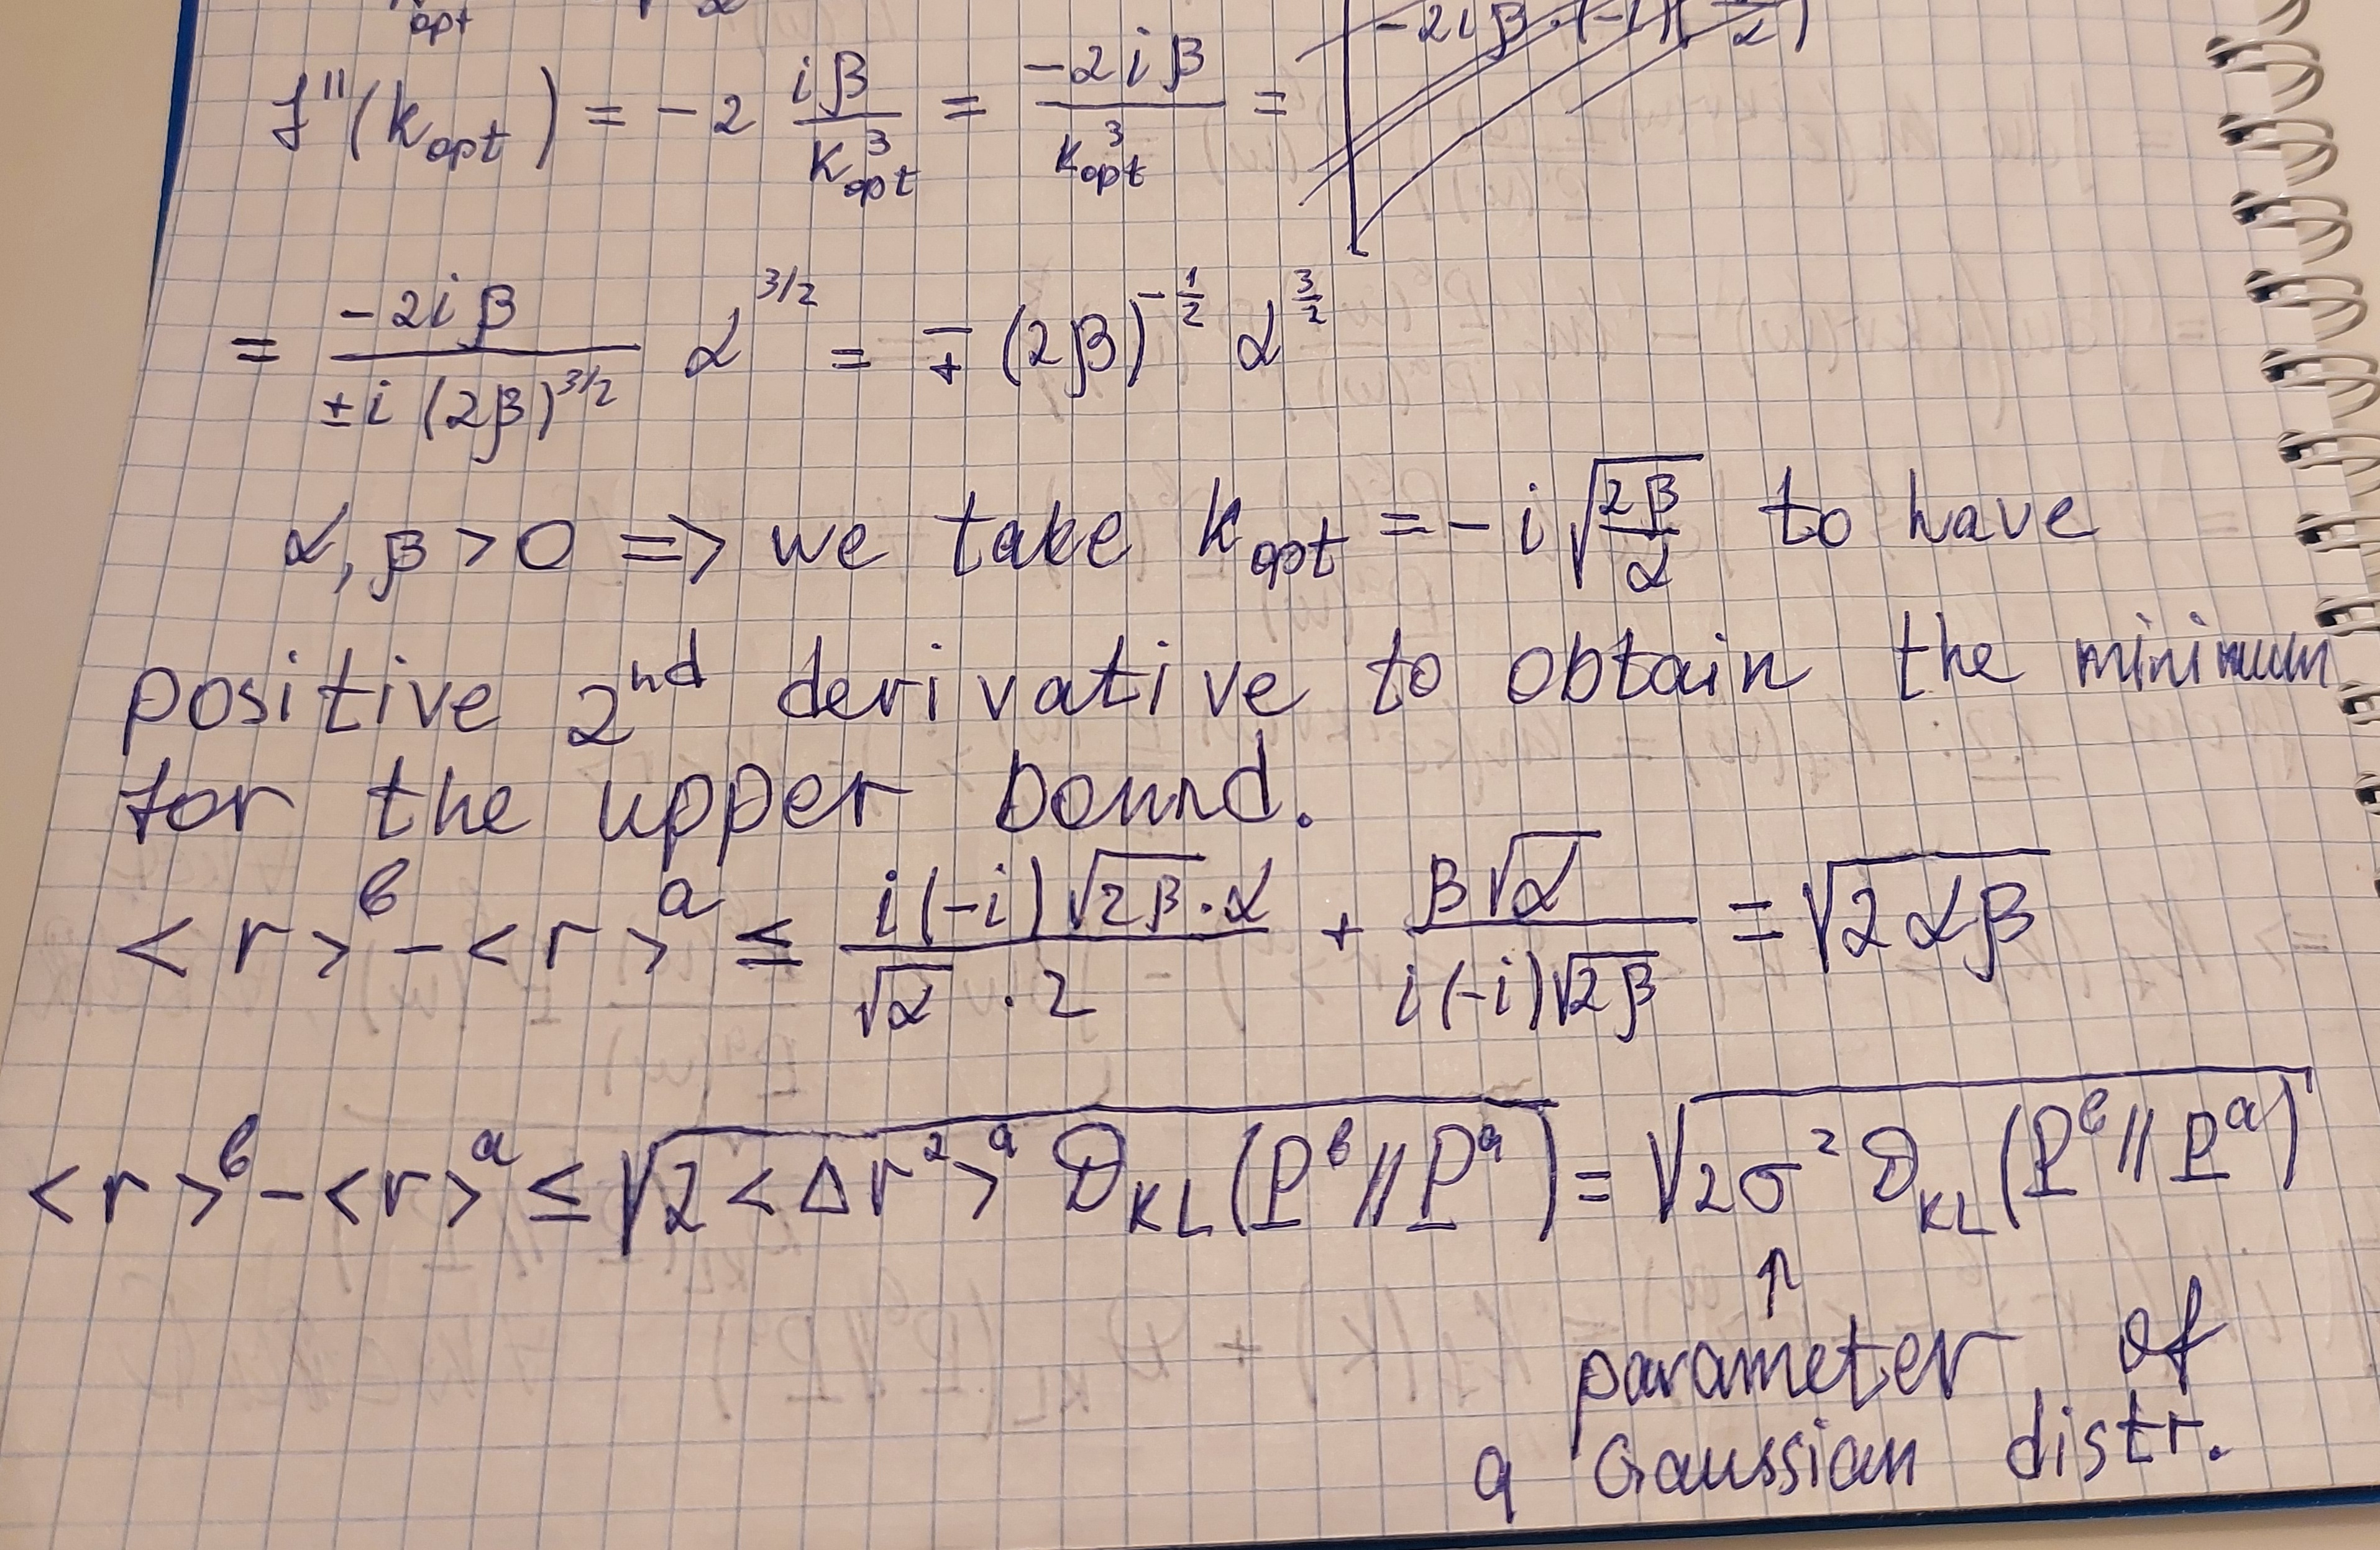 opt
f''(k_opt) = -2 iβ/k_opt^3 = -2iβ/k_opt^3 =
= -2iβ/(±i(2β)^{3/2}) α^{3/2} = ∓(2β)^{-1/2} α^{3/2}
α, β > 0 => we take k_opt = -i√(2β/α) to have
positive 2nd derivative to obtain the minimum
for the upper bound.
<r>^b - <r>^a ≤ i(-i)√(2β)·α/(√α · 2) + β√α/(i(-i)√(2β)) = √(2αβ)
<r>^b - <r>^a ≤ √(2<Δr^2>^a D_KL(P^b//P^a)) = √(2σ^2 D_KL(P^b//P^a))
↑
parameter of
a Gaussian distr.